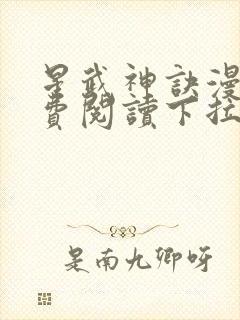 星武神訣漫
費閱讀下拉
是南九卿呀